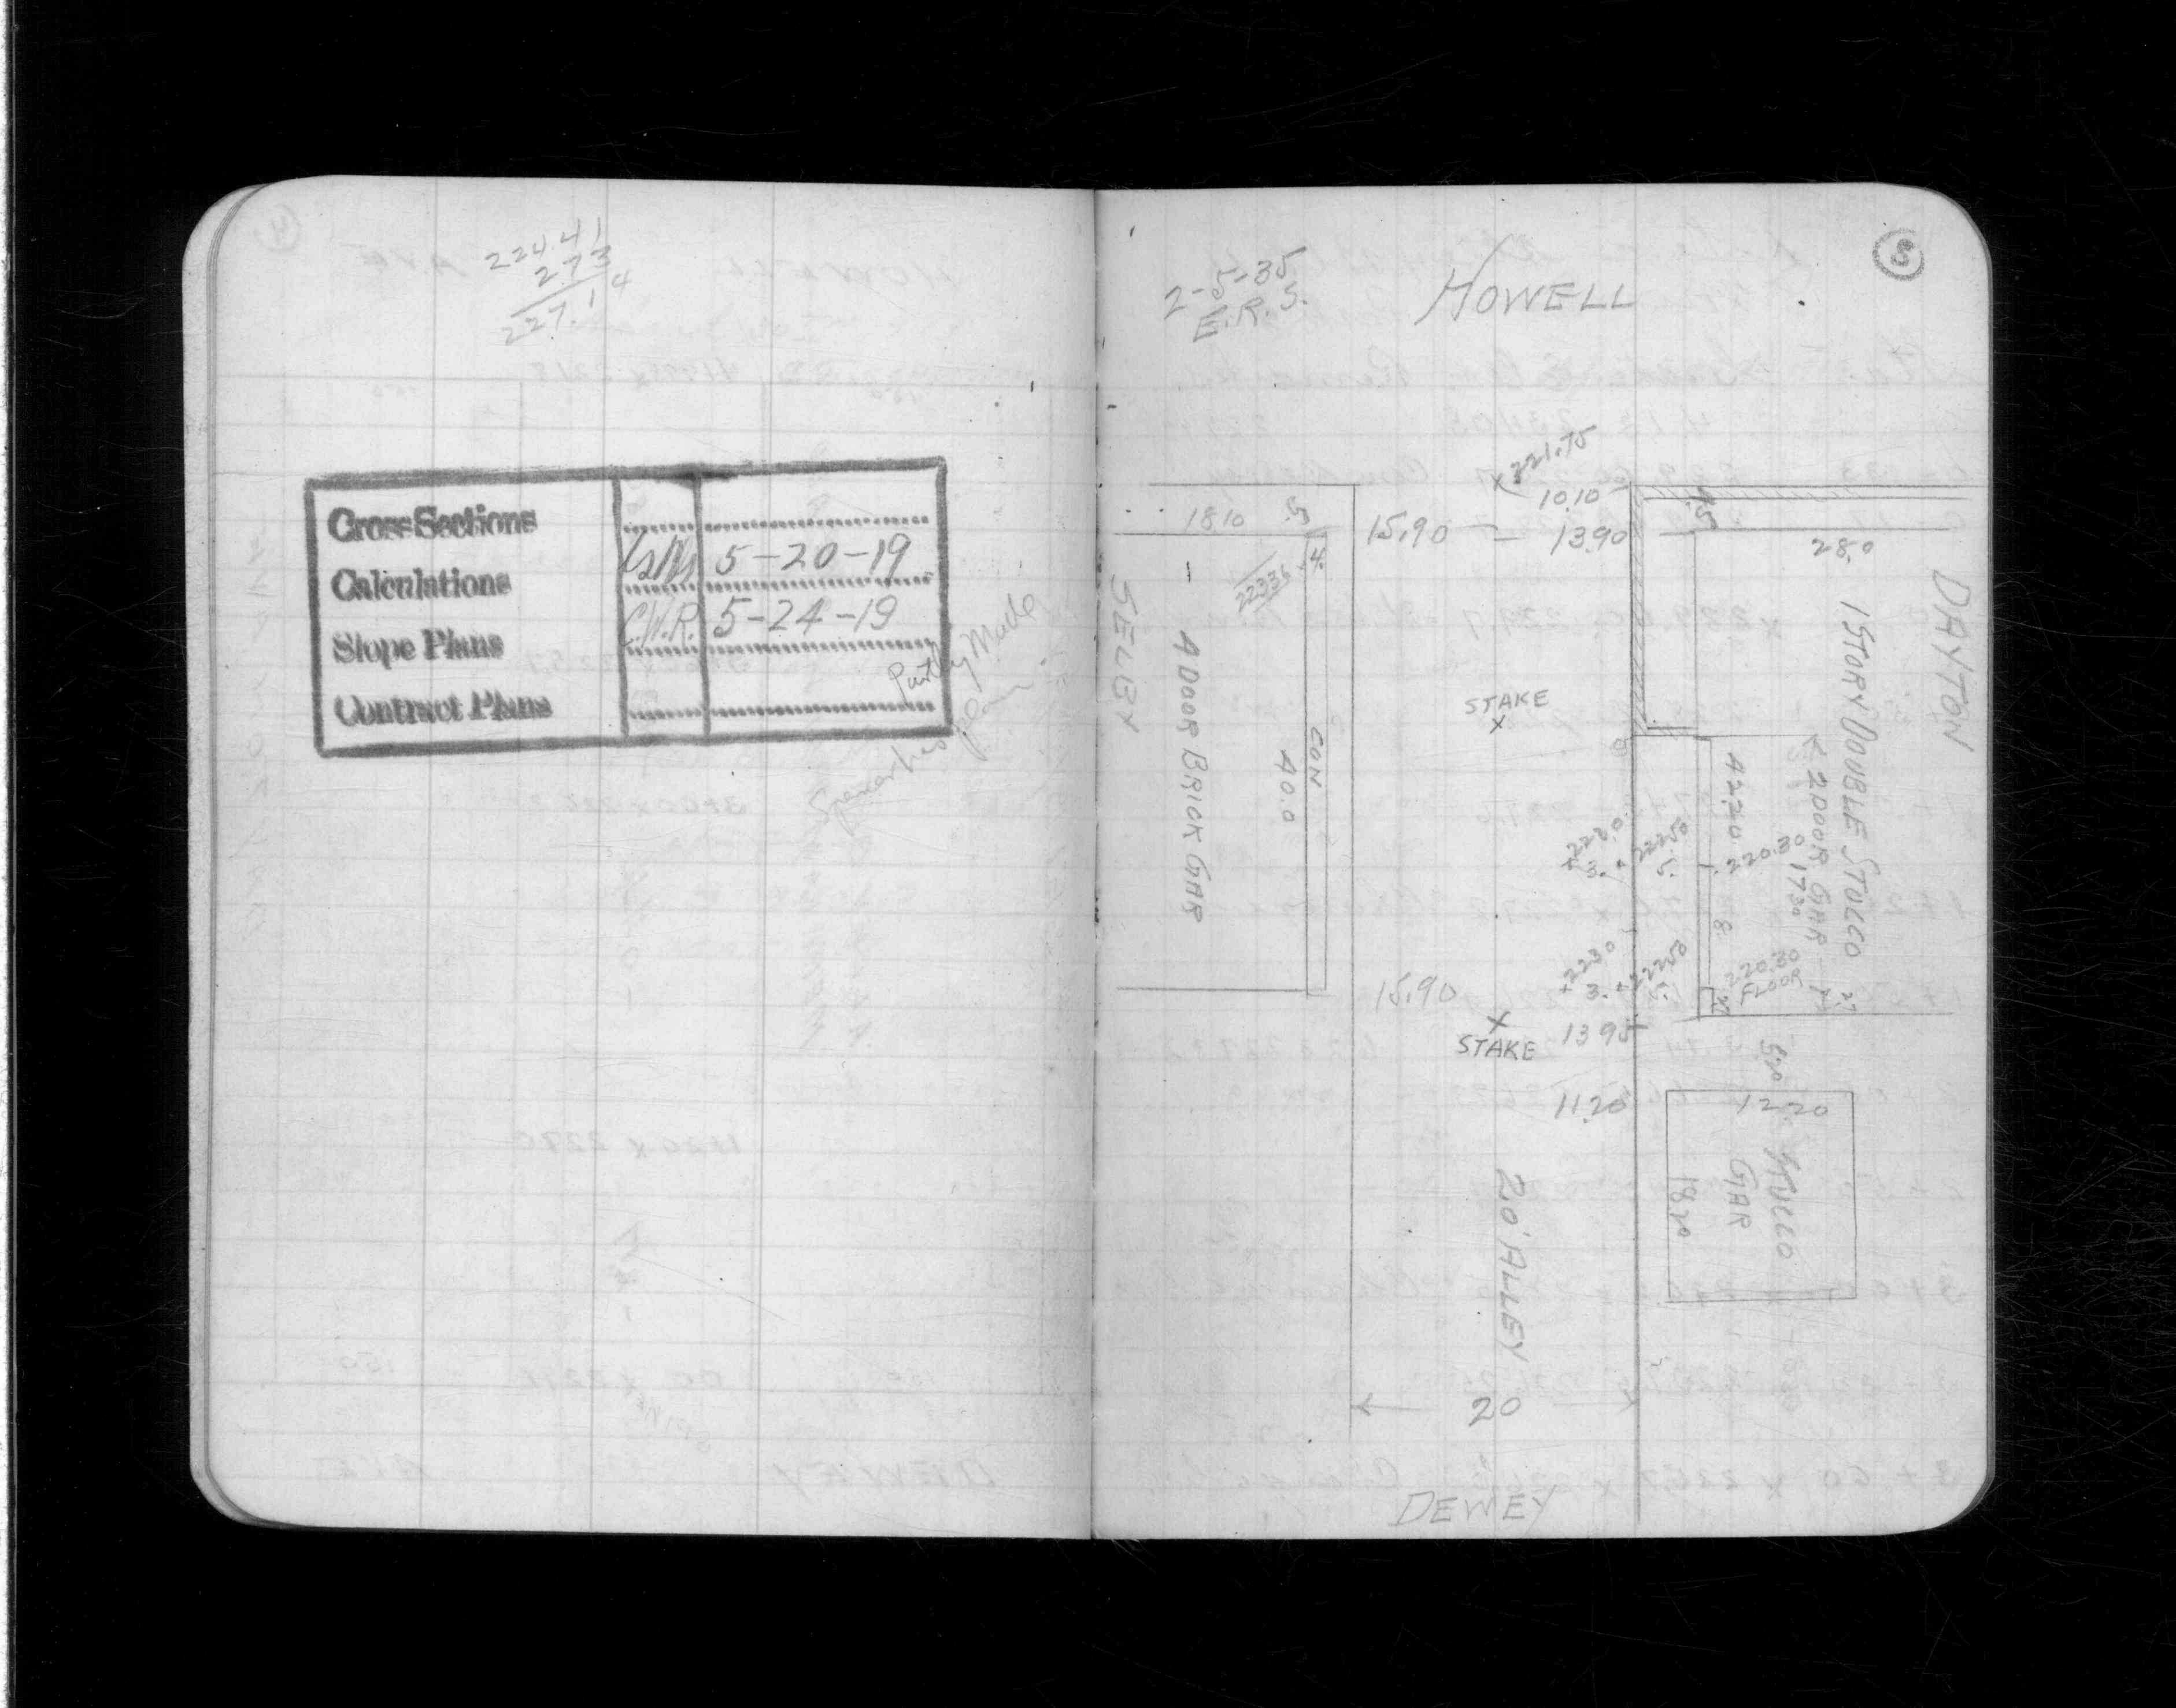 224.41
2.73
227.14
Cross Sections
Calculations
5-20-19
Slope Plans
C.W.R. 5-24-19
Contract Plans
Partly Made
2-5-35
E.R.S.
HOWELL
3
221.75
10.10
18.10 .5
15.90 - 13.90
4.5
28.0
223.36
.4
SELBY
4 DOOR BRICK GAR
CON
40.0
STAKE
DAYTON
1 STORY DOUBLE STUCCO
2 DOOR GAR
17.30
42.20
222.50
3.
5.
220.30
8
223.0
222.50
3.
5.
220.30
FLOOR
15.90
STAKE
13.95
11.20
5.0
12.20
STUCCO
GAR
18.20
20' ALLEY
20
DEWEY